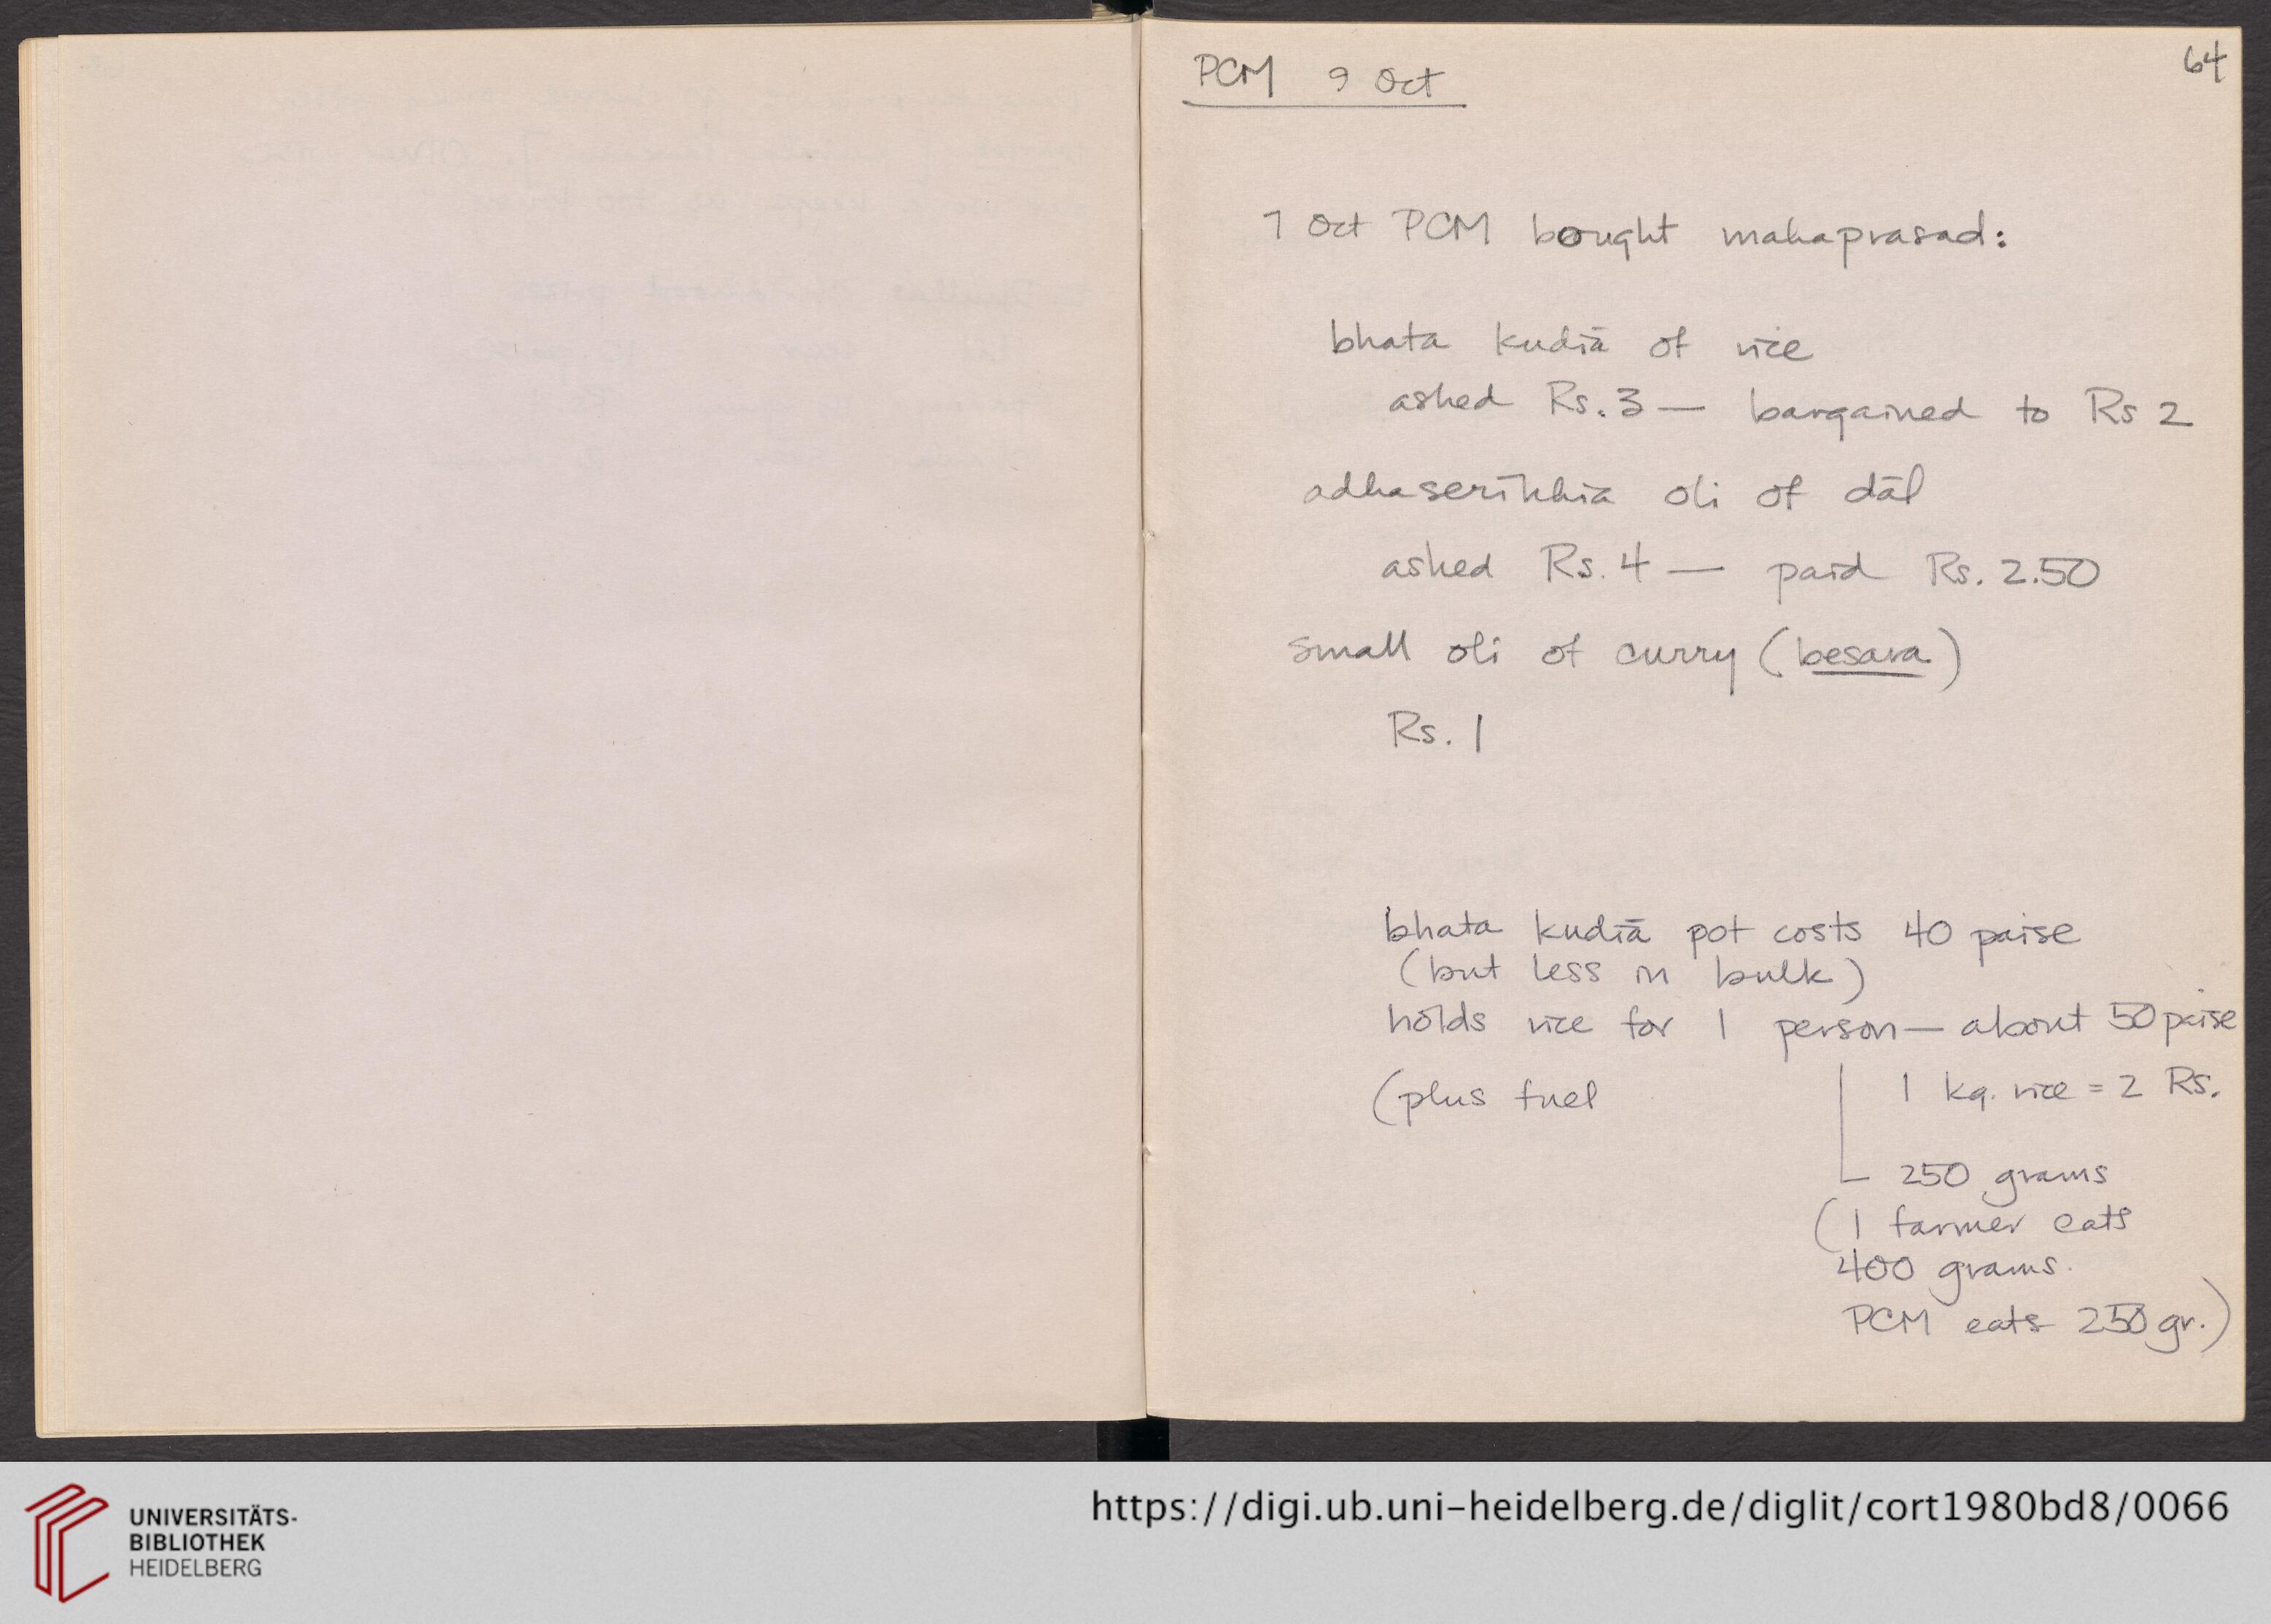 64
PCM 9 Oct
7 Oct PCM bought mahaprasad:
bhata kudiā of rice
asked Rs. 3 — bargained to Rs 2
oli of dāl
asked Rs. 4 — paid Rs. 2.50
small oli of curry (besara)
Rs. 1
bhata kudiā pot costs 40 paise
(but less in bulk)
holds rice for 1 person — about 50 paise
(plus fuel
1 kg. rice = 2 Rs.
250 grams
(1 farmer eats
400 grams.
PCM eats 250 gr.)
UNIVERSITÄTS-
BIBLIOTHEK
HEIDELBERG
https://digi.ub.uni-heidelberg.de/diglit/cort1980bd8/0066